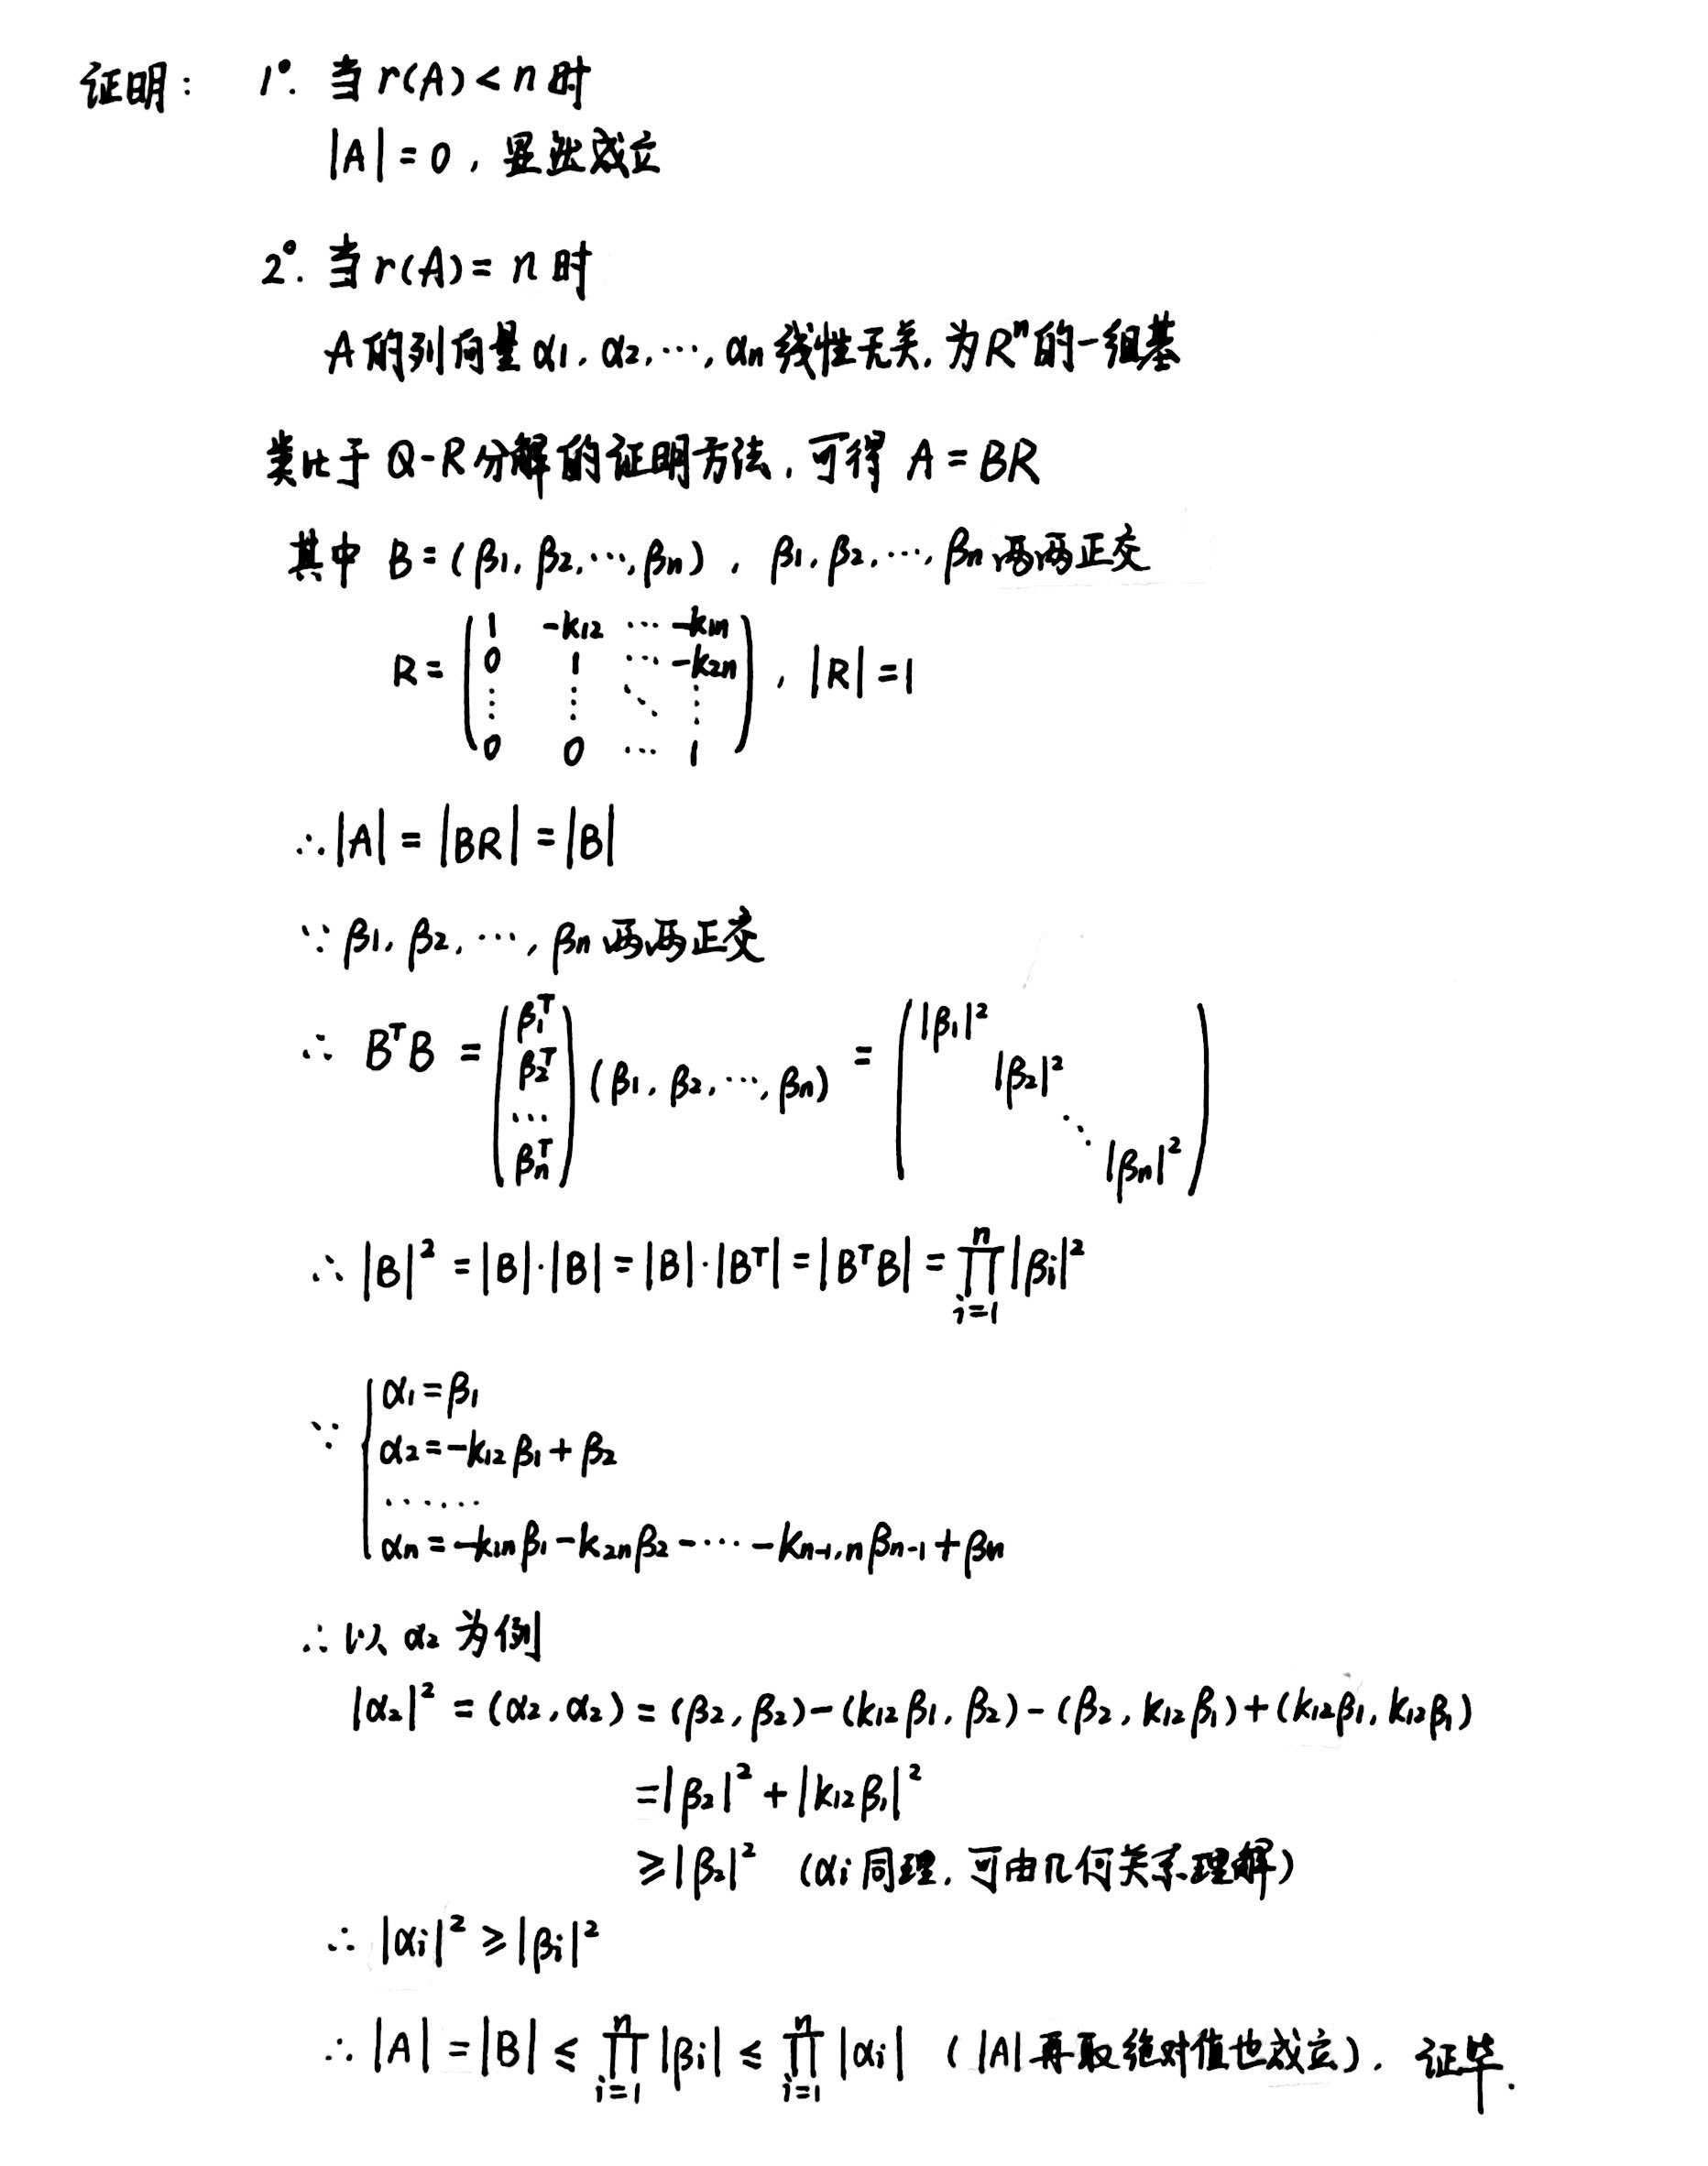 证明： 1°. 当 r(A) < n 时
|A| = 0 , 显然成立
2°. 当 r(A) = n 时
A 的列向量 α1, α2, ⋯, αn 线性无关, 为 Rⁿ 的一组基
类比于 Q-R 分解的证明方法, 可得 A = BR
其中 B = (β1, β2, ⋯, βn) , β1, β2, ⋯, βn 两两正交
R = ( 1 -k12 ⋯ -k1n
0 1 ⋯ -k2n
⋮ ⋮ ⋱ ⋮
0 0 ⋯ 1 ) , |R| = 1
∴ |A| = |BR| = |B|
∵ β1, β2, ⋯, βn 两两正交
∴ BᵀB = (β1ᵀ β2ᵀ ⋯ βnᵀ) (β1, β2, ⋯, βn) = (|β1|² |β2|² ⋱ |βn|²)
∴ |B|² = |B|·|B| = |B|·|Bᵀ| = |BᵀB| = ∏ⁿᵢ₌₁ |βi|²
∵ { α1 = β1
α2 = -k12 β1 + β2
⋯⋯
αn = -k1n β1 - k2n β2 - ⋯ - kn-1,n βn-1 + βn
∴ 以 α2 为例
|α2|² = (α2, α2) = (β2, β2) - (k12 β1, β2) - (β2, k12 β1) + (k12 β1, k12 β1)
= |β2|² + |k12 β1|²
≥ |β2|² (αi 同理, 可由几何关系理解)
∴ |αi|² ≥ |βi|²
∴ |A| = |B| ≤ ∏ⁿᵢ₌₁ |βi| ≤ ∏ⁿᵢ₌₁ |αi| ( |A| 再取绝对值也成立). 证毕.